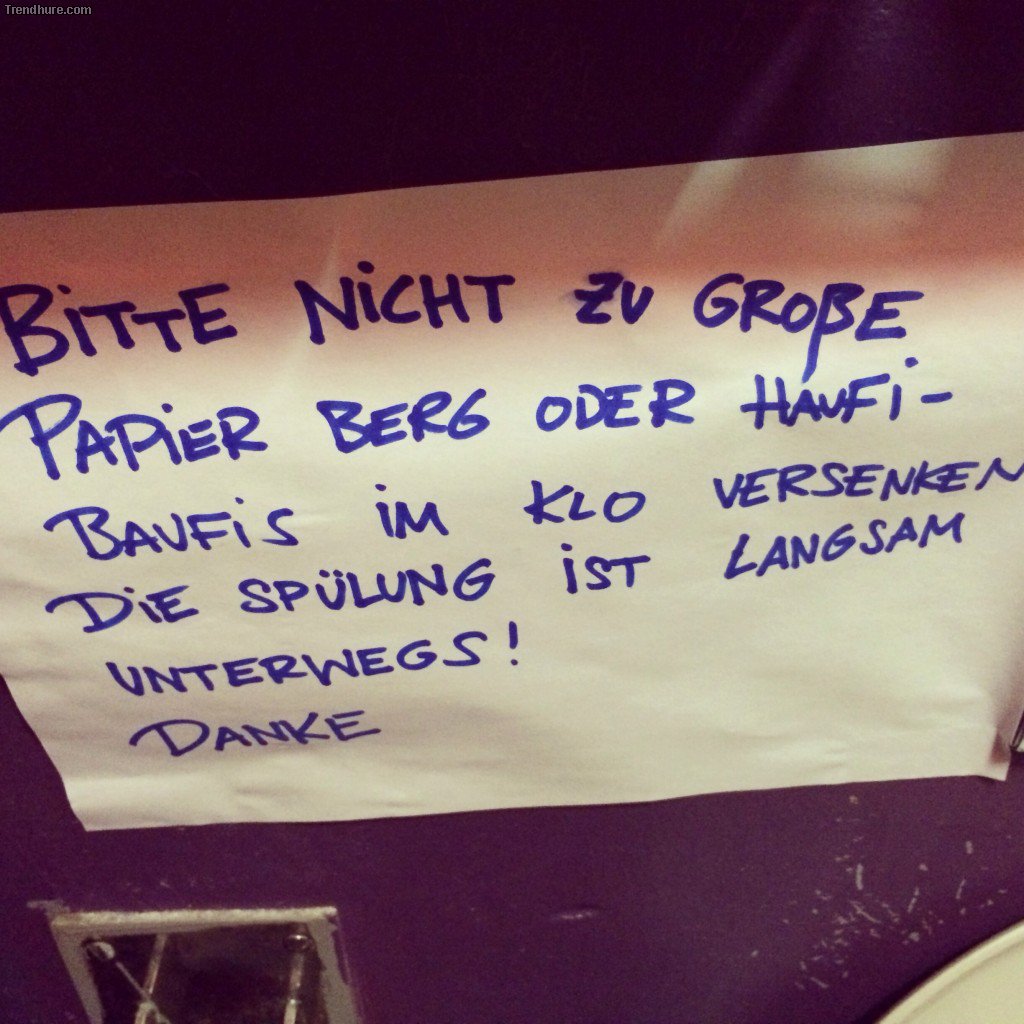 Trendhure.com
BiTTE NiCHT ZU GROßE
PAPiER BERG ODER HAUFi-
BAUFiS iM KLO VERSENKEN
DiE SPÜLUNG iST LANGSAM
UNTERWEGS!
DANKE